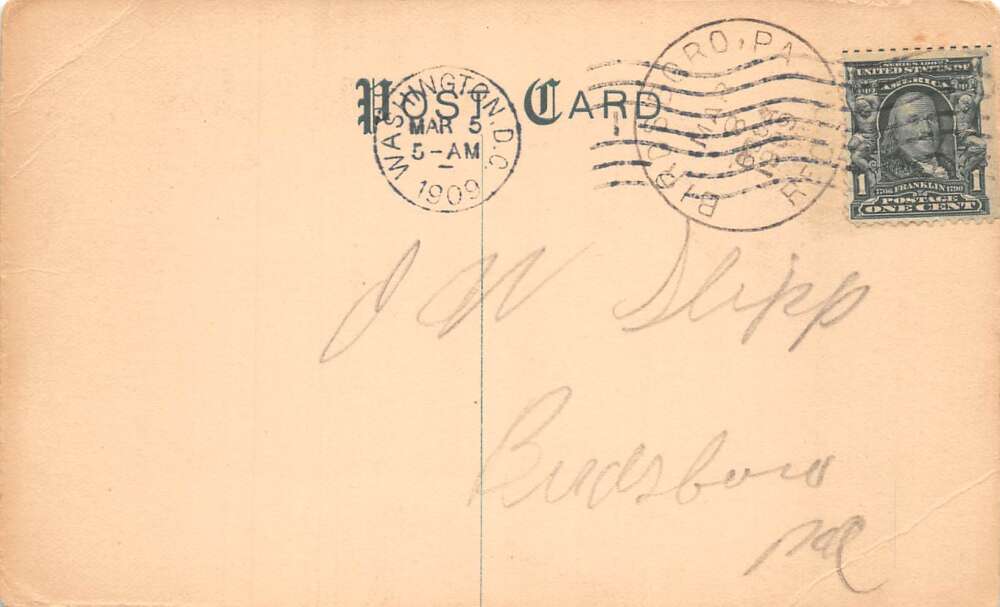 POST CARD
WASHINGTON, D.C.
MAR 5
5-AM
1909
BIRDSBORO, PA.
MAR
REC'D
SERIES 1902
UNITED STATES OF
AMERICA
1706 FRANKLIN 1790
1 1
POSTAGE
ONE CENT
J W Slipp
Birdsboro
Pa